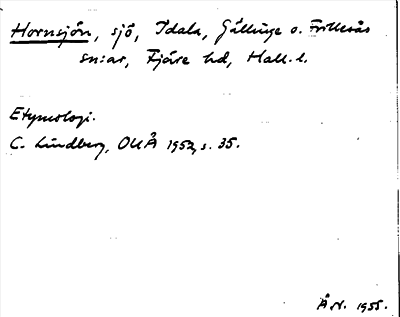 Hornsjön, sjö, Idala, Gällinge o. Frillesås
sn:ar, Fjäre hd, Hall. l.
Etymologi.
C. Lindberg, OUÅ 1952, s. 35.
Å N. 1955.